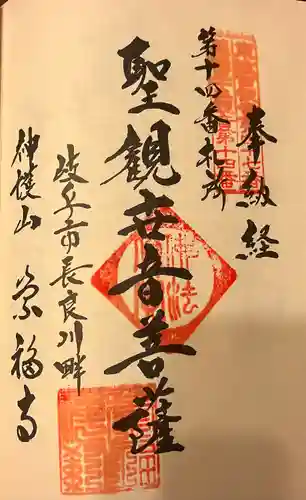 奉納経
第十四番札所
聖観世音菩薩
岐阜市長良川畔
神護山
崇福寺
第十四番